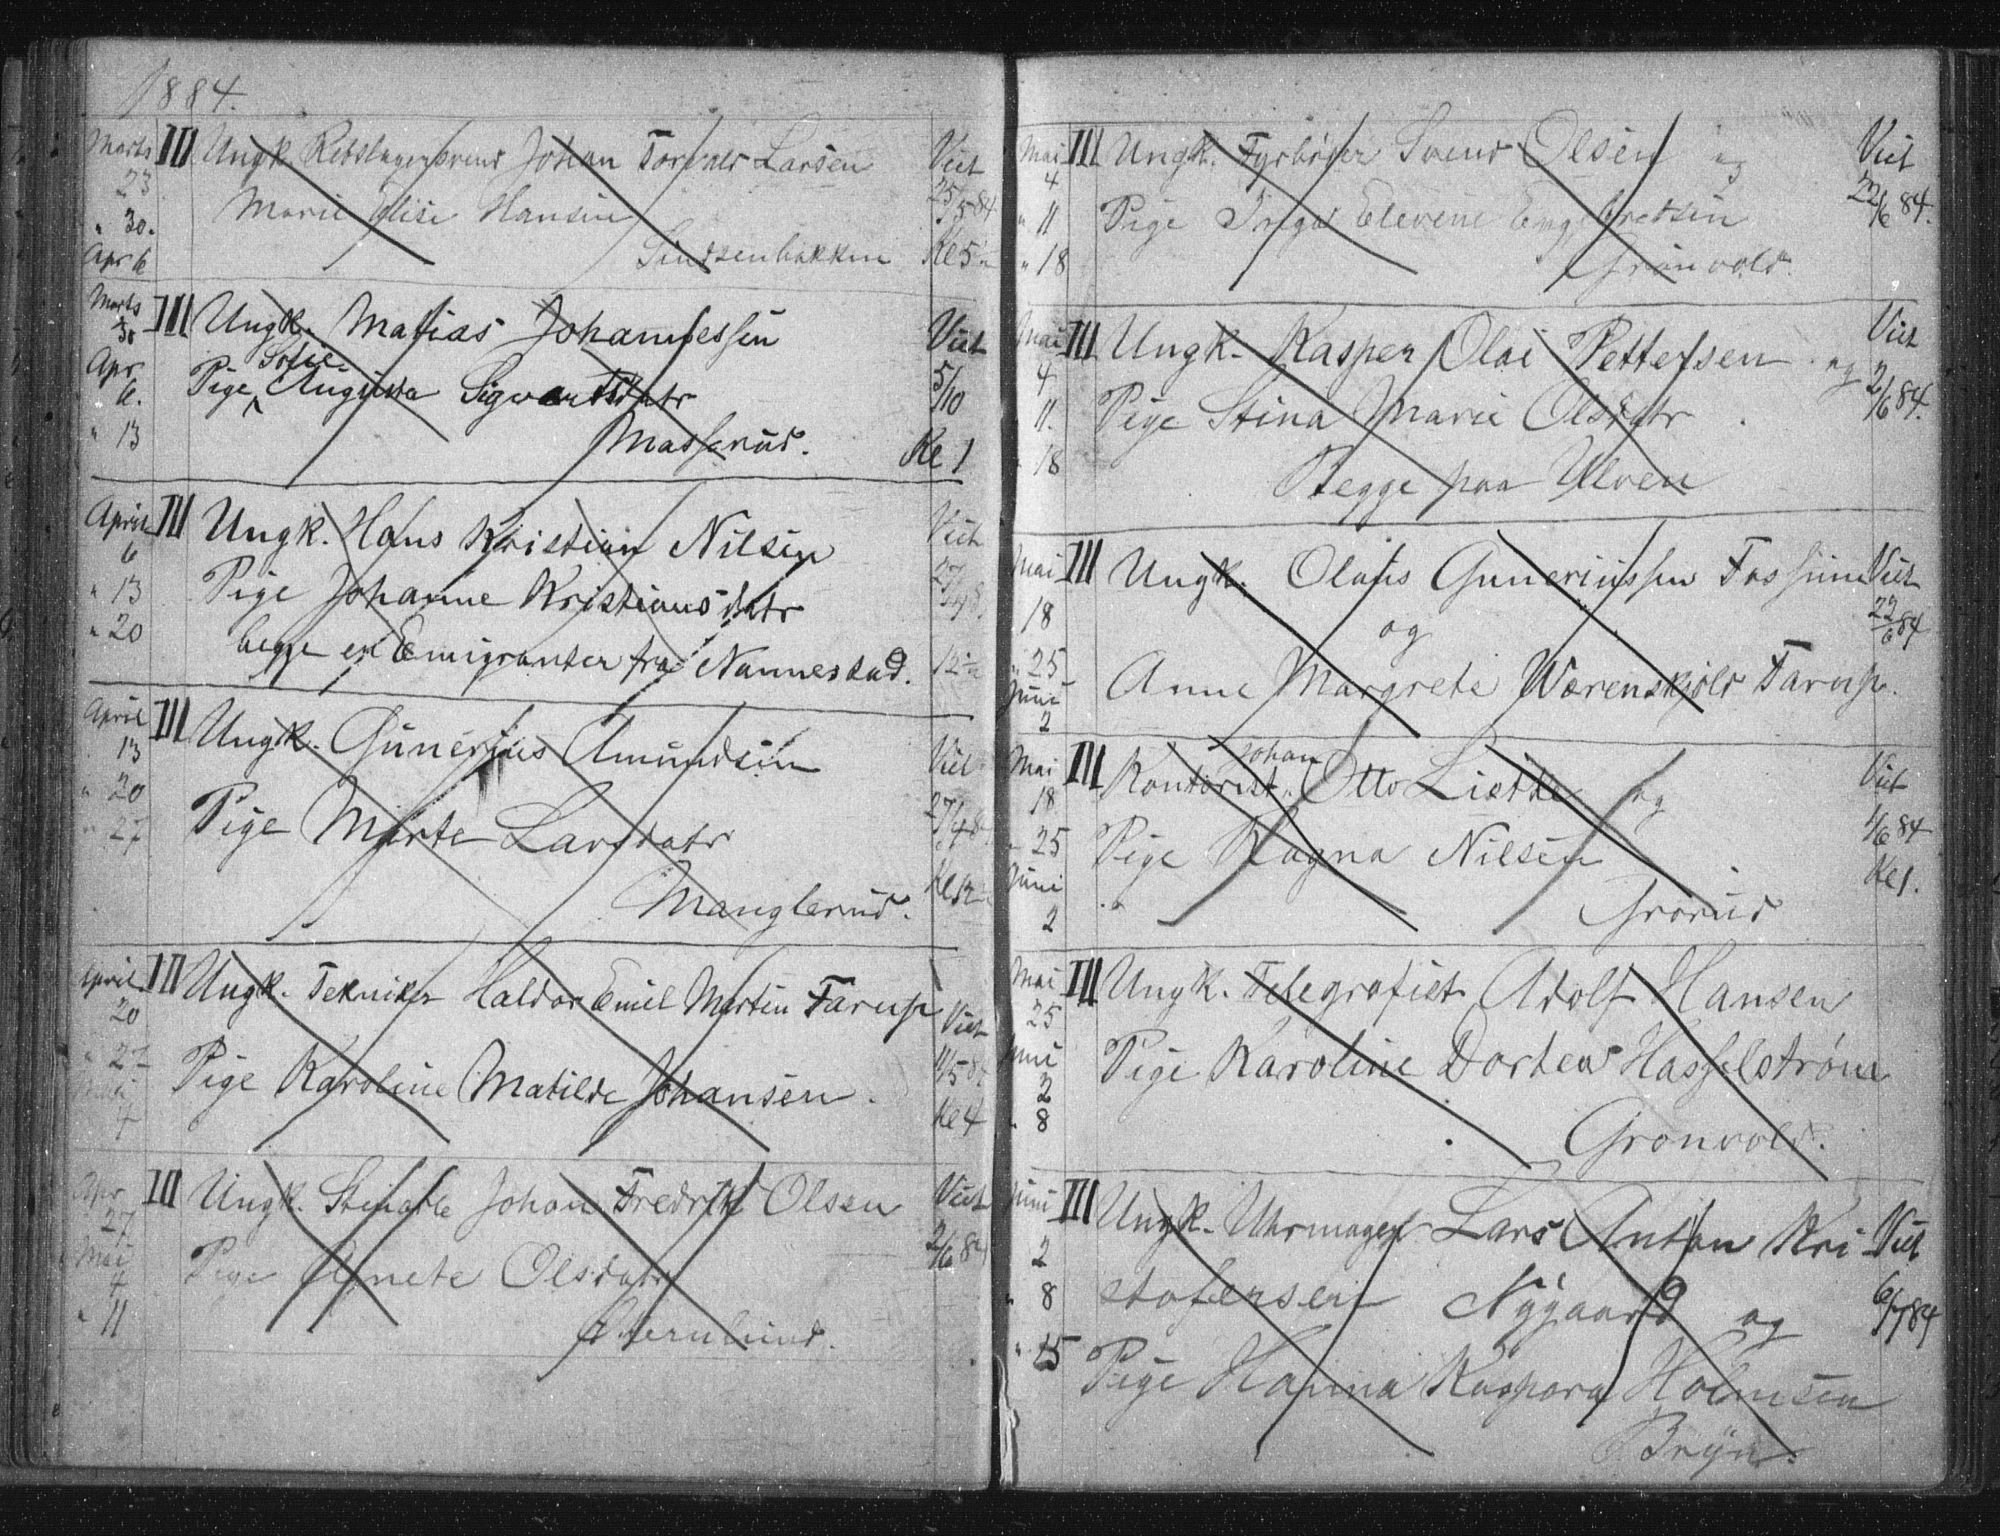 1884.
Marts III Ungk. Rebslagersvend Johan Torvald Larsen Viet
23 Marie Elise Hansen 25/5 84
" 30. Sindsenbakken Kl 5
Apr 6
Marts III Ungk. Matias Johannessen Viet
30 Sofie
Apr. Pige Augusta Sigvartsdatr 5/10
6.
" 13 Masserud. Kl 1
April III Ungk. Hans Kristian Nilsen Viet
6
" 13 Pige Johanne Kristiansdatr 27/4 8
" 20 begge er Emigranter fra Nannestad. 12
April III Ungk. Gunerius Amundsen Viet
13
" 20 Pige Marte Larsdatr 27/4 8
" 27 Manglerud. Kl 12
April III Ungk. Tekniker Haldor Emil Martin Farup Viet
20
" 27 Pige Karoline Matilde Johansen. 11/5 84
Mai
4 Kl 4
Apr III Ungk. Johan Fredrik Olsen Viet
27
Mai Pige Agnete Olsdatr 2/6 84
4
" 11 lund.
Mai III Ungk. Fyrbøder Svend Olsen og Viet
4
" 11 Pige Inga Elevene Engebretsen 22/6 84.
" 18 Grønvold.
Mai III Ungk. Kasper Olai Pettersen og Viet
4
11. Pige Stina Marie Olsdatr 2/6 84.
" 18 Begge paa Ulven
Mai III Ungk. Olaus Guneriussen Fossum Viet
18 og 22/6 84
" 25
Juni Anne Margrete Wærenskjold Farup.
2
Mai III Kontorist. Johan Otto Lietke og Viet
18
" 25 Pige Ragna Nilsen 1/6 84
Juni Kl 1.
2 Grorud
Mai III Ungk. Telegrafist Adolf Hansen
25
Juni Pige Karoline Dortea Hasselstrøm
2
" 8 Grønvold.
Juni III Ungk. Uhrmager Lars Anton Kri- Viet
2
" 8 stofersen Nygaard og 6/7 84
" 15 Pige Hanna Kaspara Holmsen
Bryn.